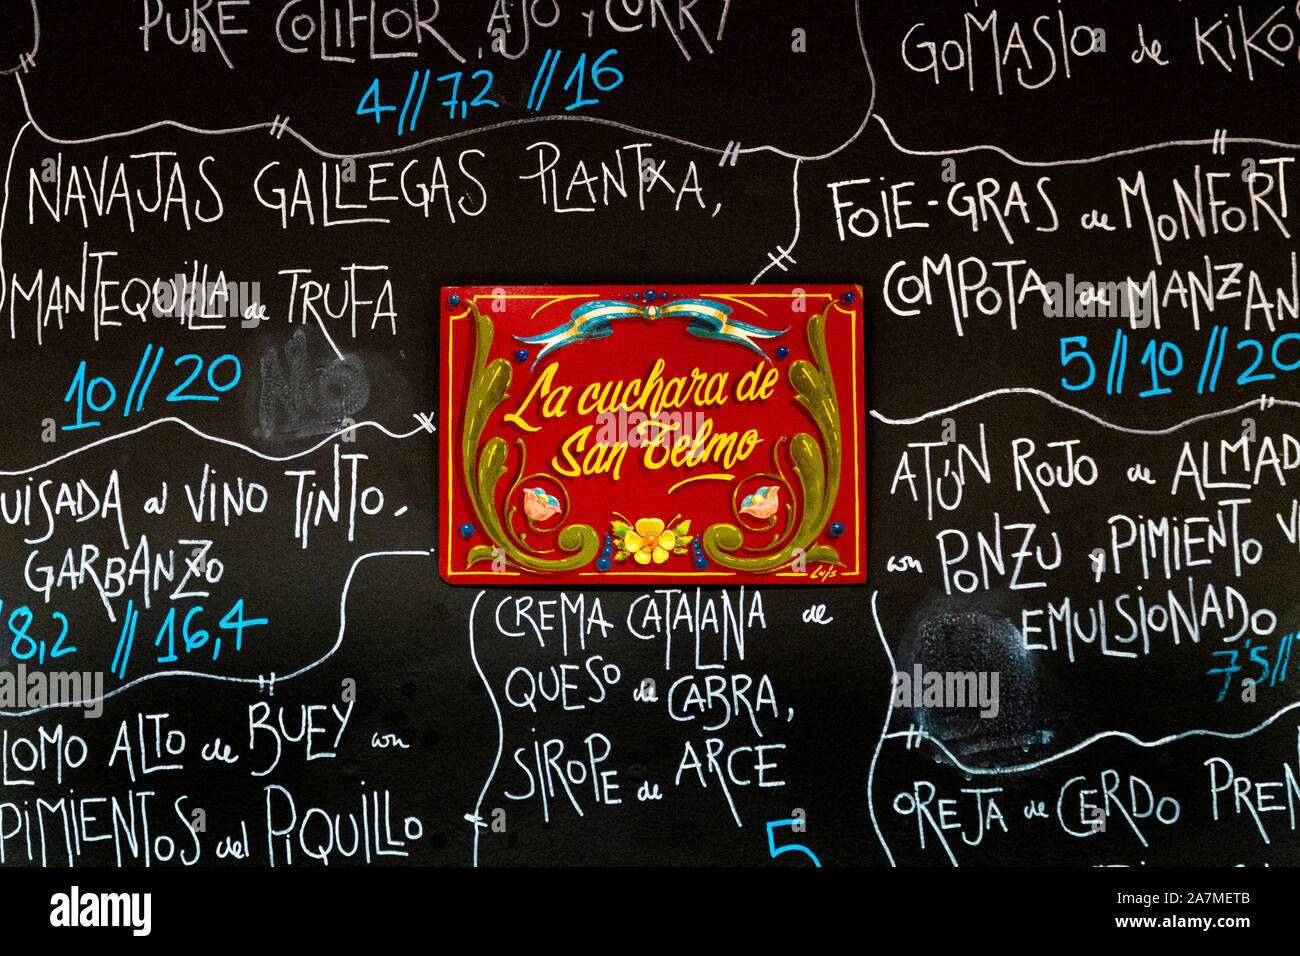 PURE COLIFLOR, AJO y CURRY
4//7,2//16
GOMASIO de KIKO
NAVAJAS GALLEGAS PLANTXA,
MANTEQUILLA de TRUFA
10//20
NO
FOIE-GRAS de MONFORT
COMPOTA de MANZAN
5//10//20
La cuchara de
San Telmo
Luis
UISADA al VINO TINTO,
GARBANZO
8,2//16,4
ATÚN ROJO de ALMAD
con PONZU y PIMIENTO V
EMULSIONADO
7'5//
LOMO ALTO de BUEY con
PIMIENTOS del PIQUILLO
CREMA CATALANA de
QUESO de CABRA,
SIROPE de ARCE
5
OREJA de CERDO PREN
alamy
alamy
Image ID: 2A7METB
www.alamy.com